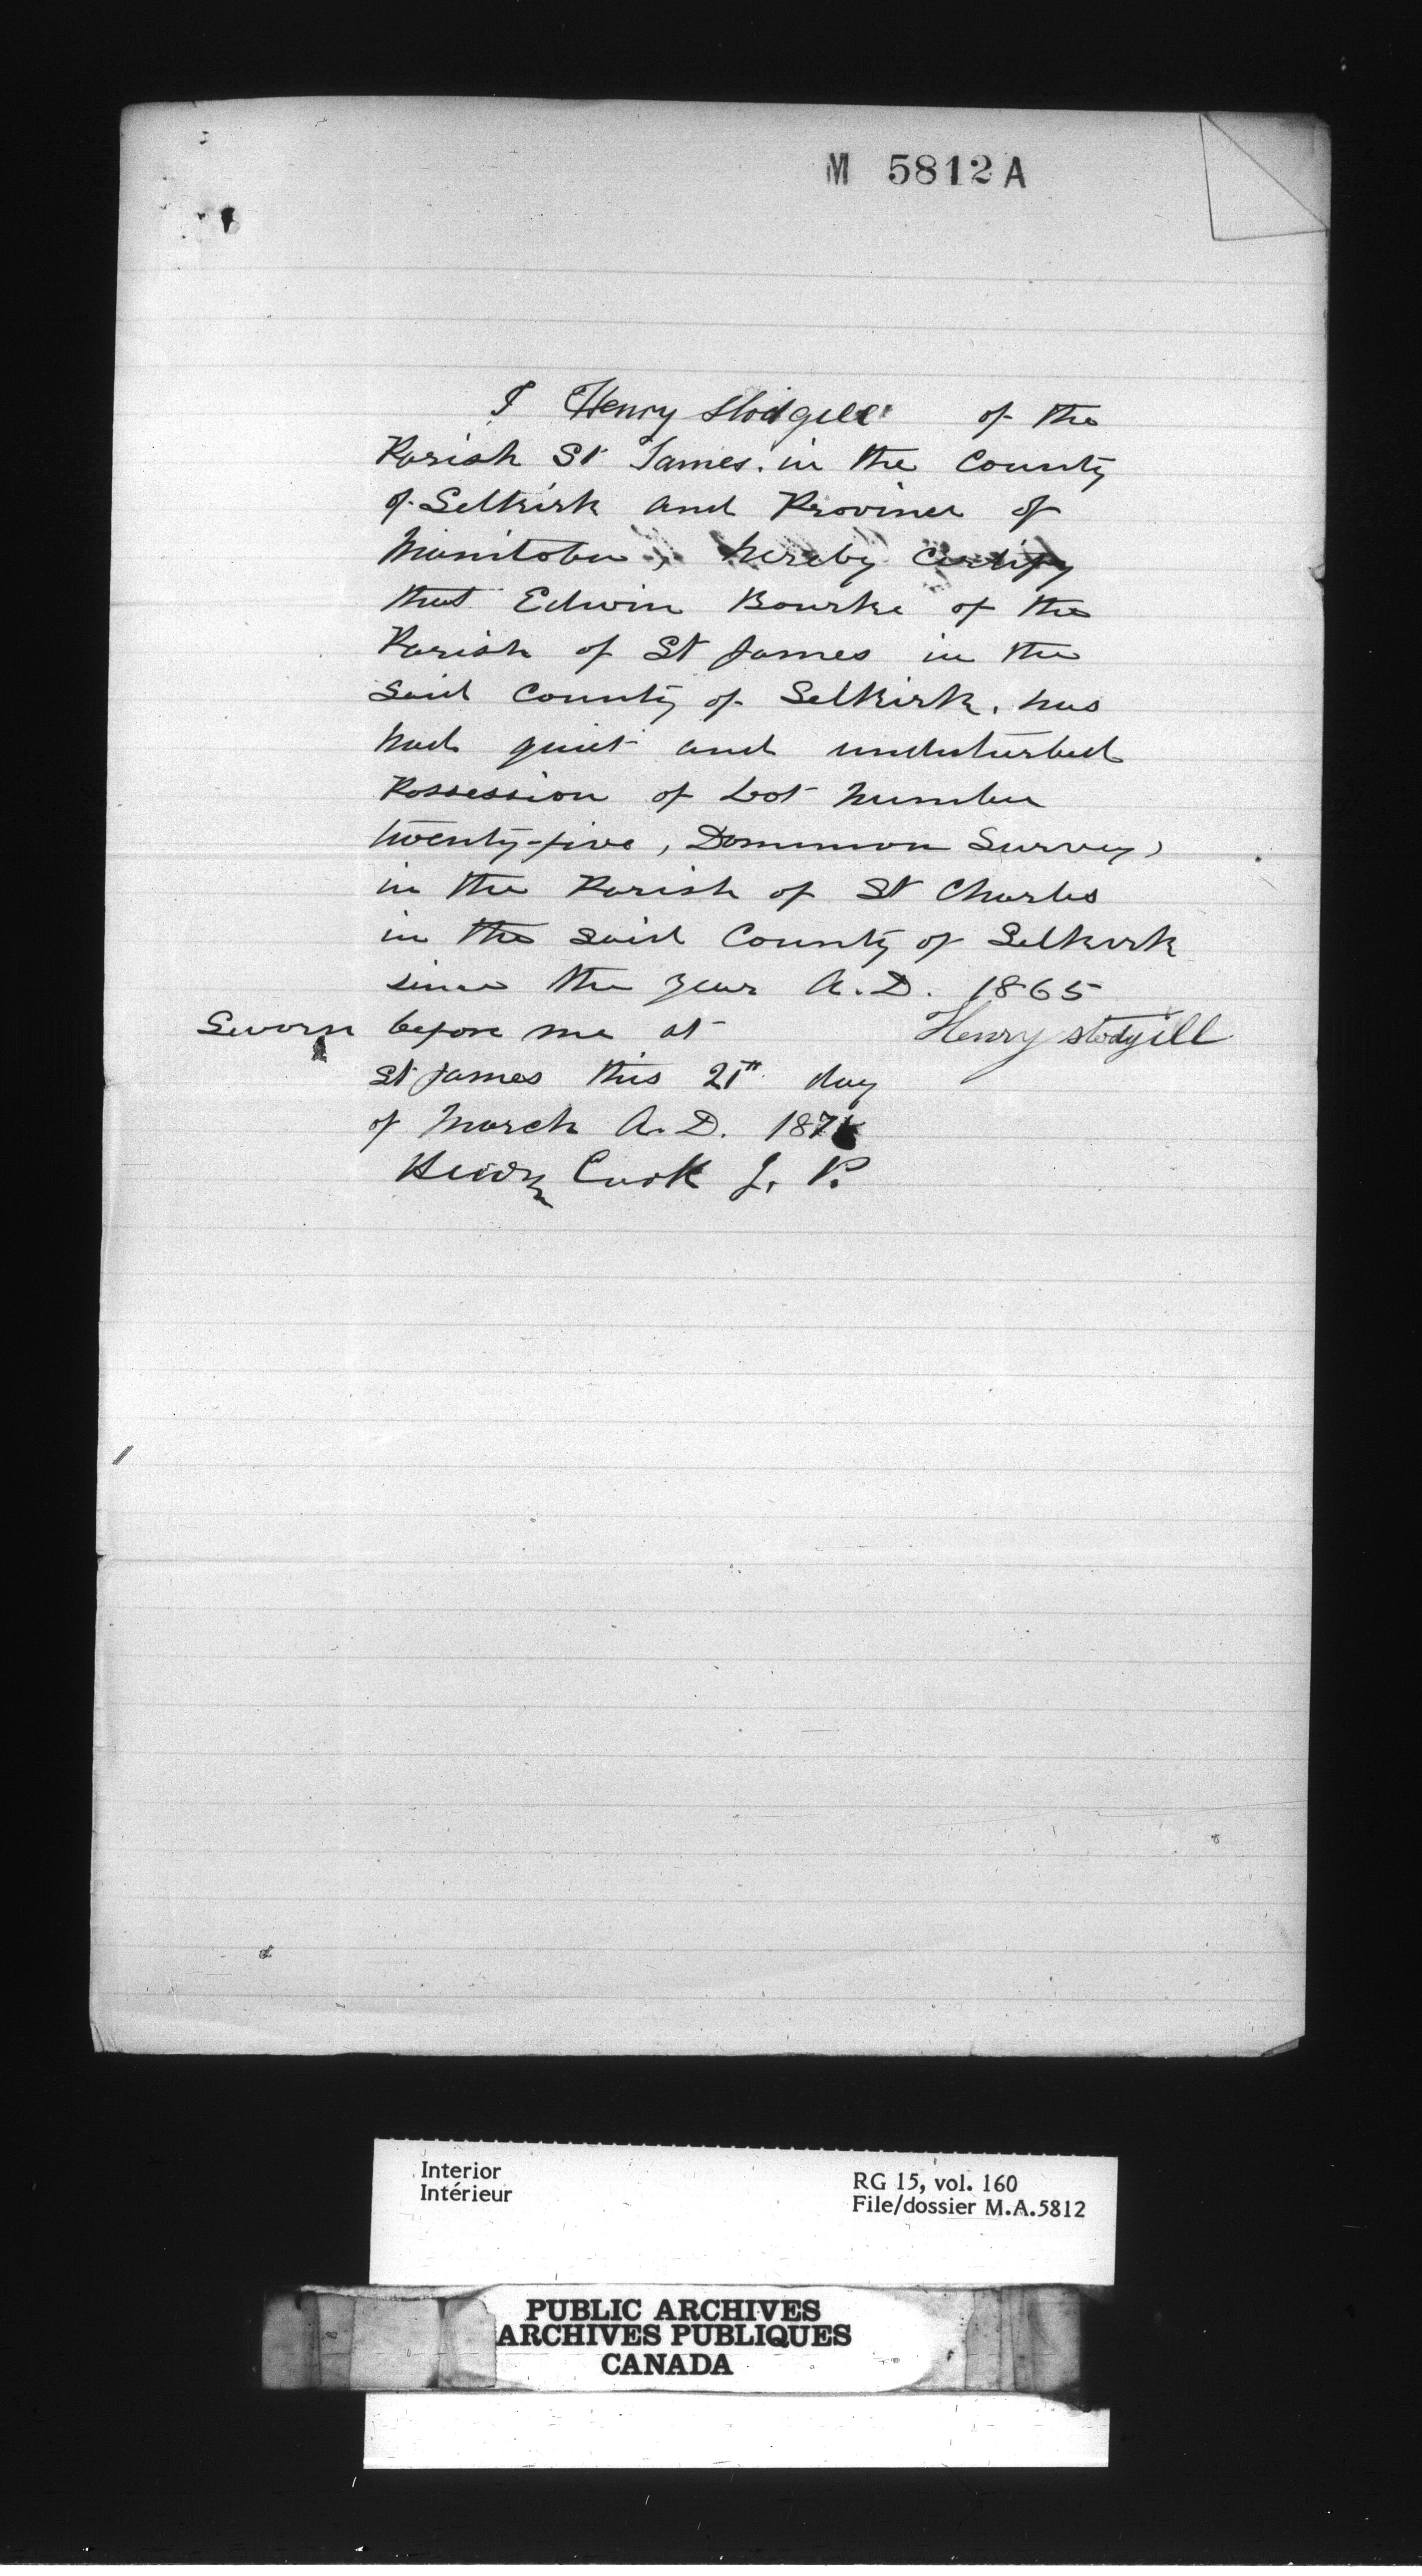 M 5812 A
I Henry Stodgill of the
Parish St James. in the County
of Selkirk and Province of
Manitoba, hereby certify
that Edwin Bourke of the
Parish of St James in the
said County of Selkirk, has
had quiet and undisturbed
Possession of Lot Number
twenty-five, Dominion Survey,
in the Parish of St Charles
in the said County of Selkirk
since the year A.D. 1865
Sworn before me at
Henry Stodgill
St James this 21st day
of March A.D. 187
Henry Cook J. P.
Interior
Intérieur
RG 15, vol. 160
File/dossier M.A.5812
PUBLIC ARCHIVES
ARCHIVES PUBLIQUES
CANADA